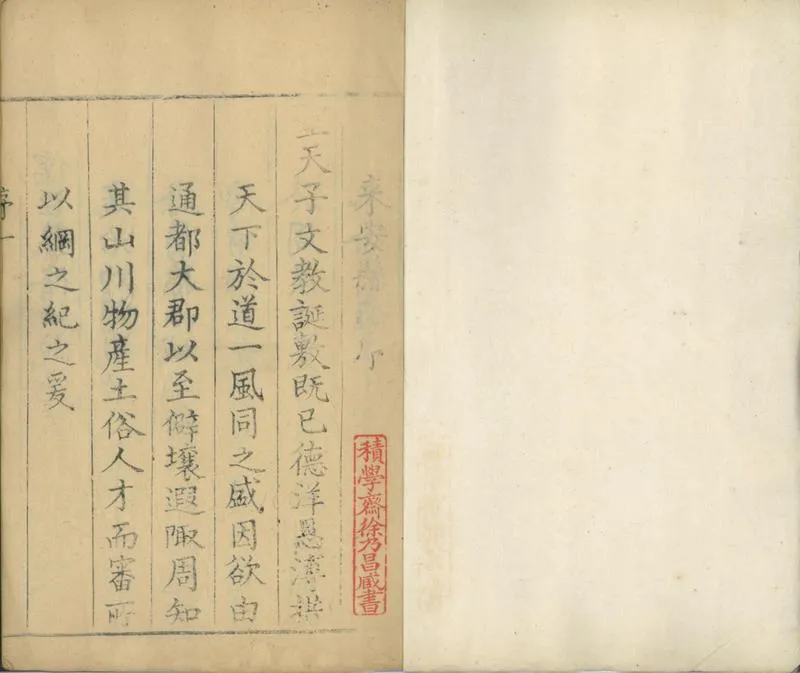 來安縣志序
聖天子文教誕敷既已德洋恩溥
天下於道一風同之盛因欲由
通都大郡以至僻壤遐陬周知
其山川物產土俗人才而審所
以綱之紀之爰
序一
積學齋徐乃昌藏書